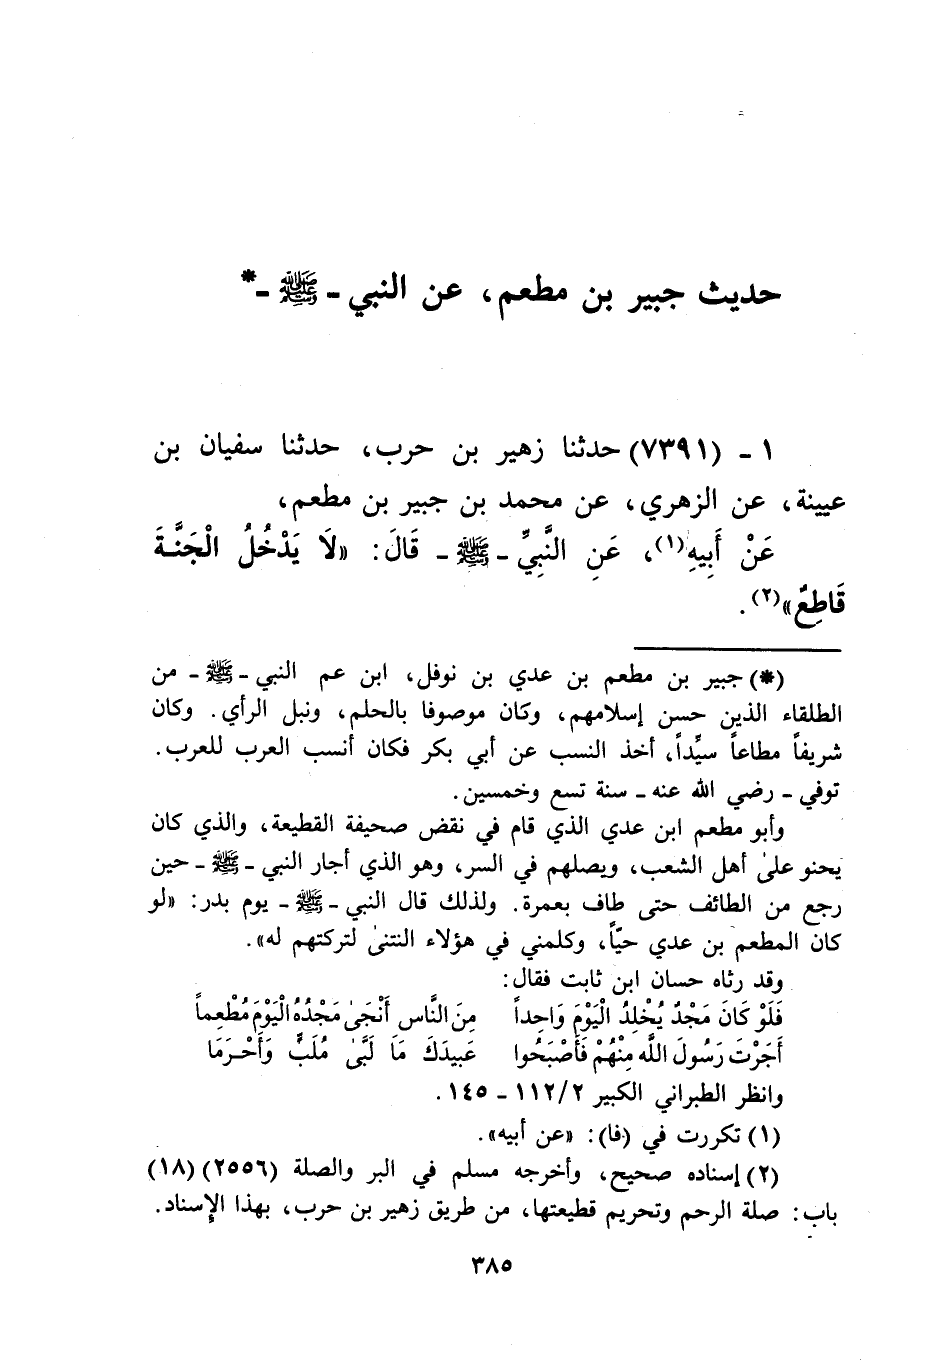 حديث جبير بن مطعم، عن النبي ـ ﷺ ـ*
١ ـ (٧٣٩١) حدثنا زهير بن حرب، حدثنا سفيان بن
عيينة، عن الزهري، عن محمد بن جبير بن مطعم،
عَنْ أَبِيهِ(١)، عَنِ النَّبِيِّ ـ ﷺ ـ قَالَ: «لَا يَدْخُلُ الْجَنَّةَ
قَاطِعٌ»(٢).
(*) جبير بن مطعم بن عدي بن نوفل، ابن عم النبي ـ ﷺ ـ من
الطلقاء الذين حسن إسلامهم، وكان موصوفا بالحلم، ونبل الرأي. وكان
شريفاً مطاعاً سيِّداً، أخذ النسب عن أبي بكر فكان أنسب العرب للعرب.
توفي ـ رضي الله عنه ـ سنة تسع وخمسين.
وأبو مطعم ابن عدي الذي قام في نقض صحيفة القطيعة، والذي كان
يحنو علىٰ أهل الشعب، ويصلهم في السر، وهو الذي أجار النبي ـ ﷺ ـ حين
رجع من الطائف حتى طاف بعمرة. ولذلك قال النبي ـ ﷺ ـ يوم بدر: «لو
كان المطعم بن عدي حيّاً، وكلمني في هؤلاء النتنىٰ لتركتهم له».
وقد رثاه حسان ابن ثابت فقال:
فَلَوْ كَانَ مَجْدٌ يُخْلِدُ الْيَوْمَ وَاحِداً مِنَ النَّاسِ أَنْجَىٰ مَجْدُهُ الْيَوْمَ مُطْعِماً
أَجَرْتَ رَسُولَ اللَّهِ مِنْهُمْ فَأَصْبَحُوا عَبِيدَكَ مَا لَبَّىٰ مُلَبٍّ وَأَحْرَمَا
وانظر الطبراني الكبير ١١٢/٢ ـ ١٤٥.
(١) تكررت في (فا): «عن أبيه».
(٢) إسناده صحيح، وأخرجه مسلم في البر والصلة (٢٥٥٦) (١٨)
باب: صلة الرحم وتحريم قطيعتها، من طريق زهير بن حرب، بهذا الإسناد.
٣٨٥